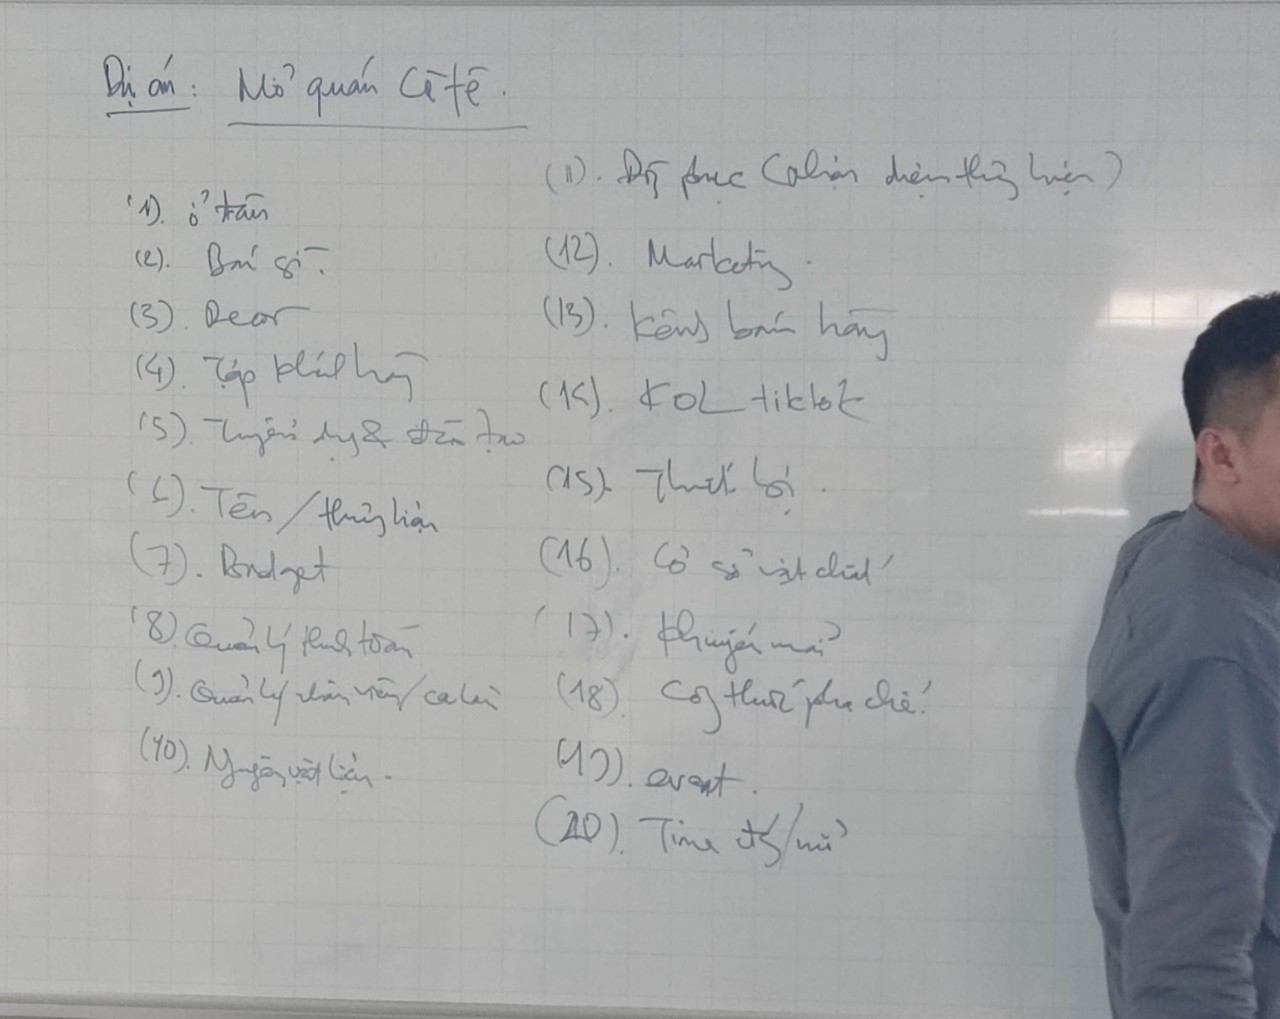 Dự án: Mở quán Cà fê.
(1). ở đâu
(2). Bán gì.
(3). Decor
(4). Tập khách hàng
(5). Tuyển dụng & đào tạo
(6). Tên / thương hiệu
(7). Budget
(8). Quản lý thanh toán
(9). Quản lý nhân viên / ca kíp
(10). Nguyên vật liệu.
(11). Đồng phục (nhận diện thương hiệu)
(12). Marketing.
(13). Kênh bán hàng
(14). KOL tiktok
(15). Thiết bị.
(16). Cơ sở vật chất
(17). Khuyến mãi
(18). Công thức pha chế
(19). event.
(20). Time đóng/mở